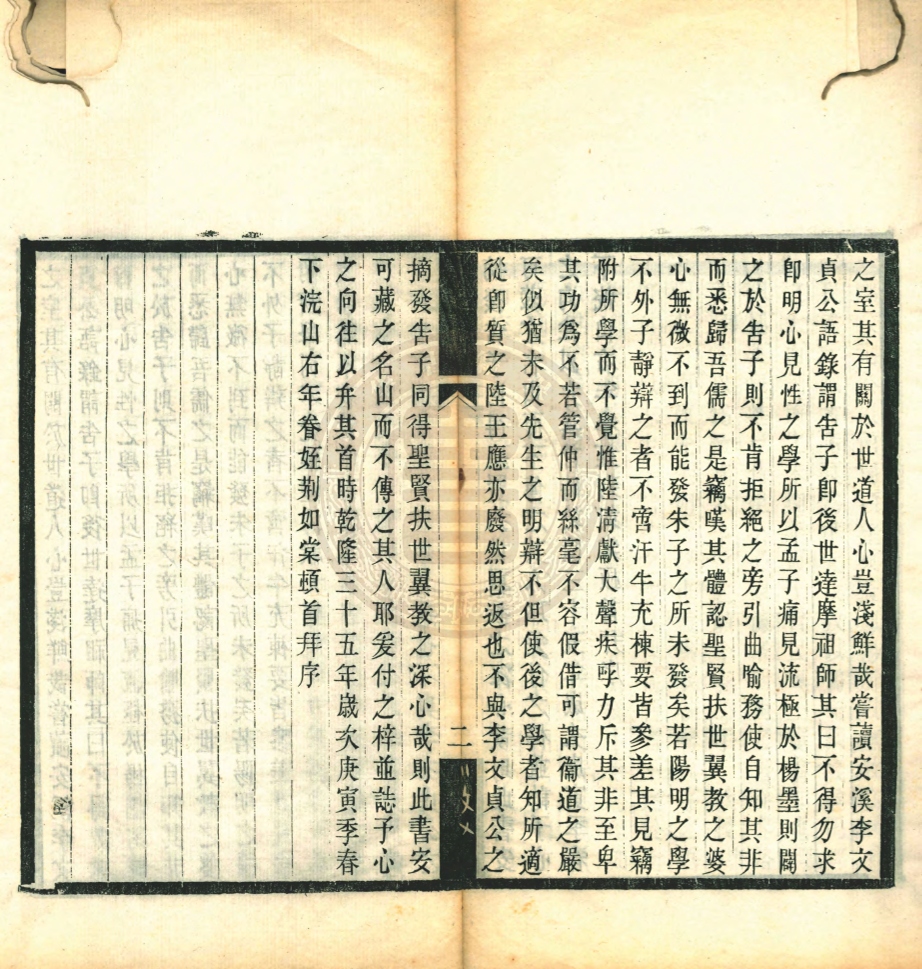 之室其有關於世道人心豈淺鮮哉嘗讀安溪李文
貞公語錄謂告子卽後世達摩祖師其曰不得勿求
卽明心見性之學所以孟子痛見流極於楊墨則闢
之於告子則不肯拒絕之旁引曲喻務使自知其非
而悉歸吾儒之是竊嘆其體認聖賢扶世翼教之婆
心無微不到而能發朱子之所未發矣若陽明之學
不外子靜辯之者不啻汗牛充棟要皆參差其見竊
附所學而不覺惟陸清獻大聲疾呼力斥其非至卑
其功爲不若管仲而絲毫不容假借可謂衞道之嚴
矣似猶未及先生之明辯不但使後之學者知所適
從卽質之陸王應亦廢然思返也不與李文貞公之
二
摘發告子同得聖賢扶世翼教之深心哉則此書安
可藏之名山而不傳之其人耶爰付之梓並誌予心
之向往以弁其首時乾隆三十五年歲次庚寅季春
下浣山右年眷姪荆如棠頓首拜序